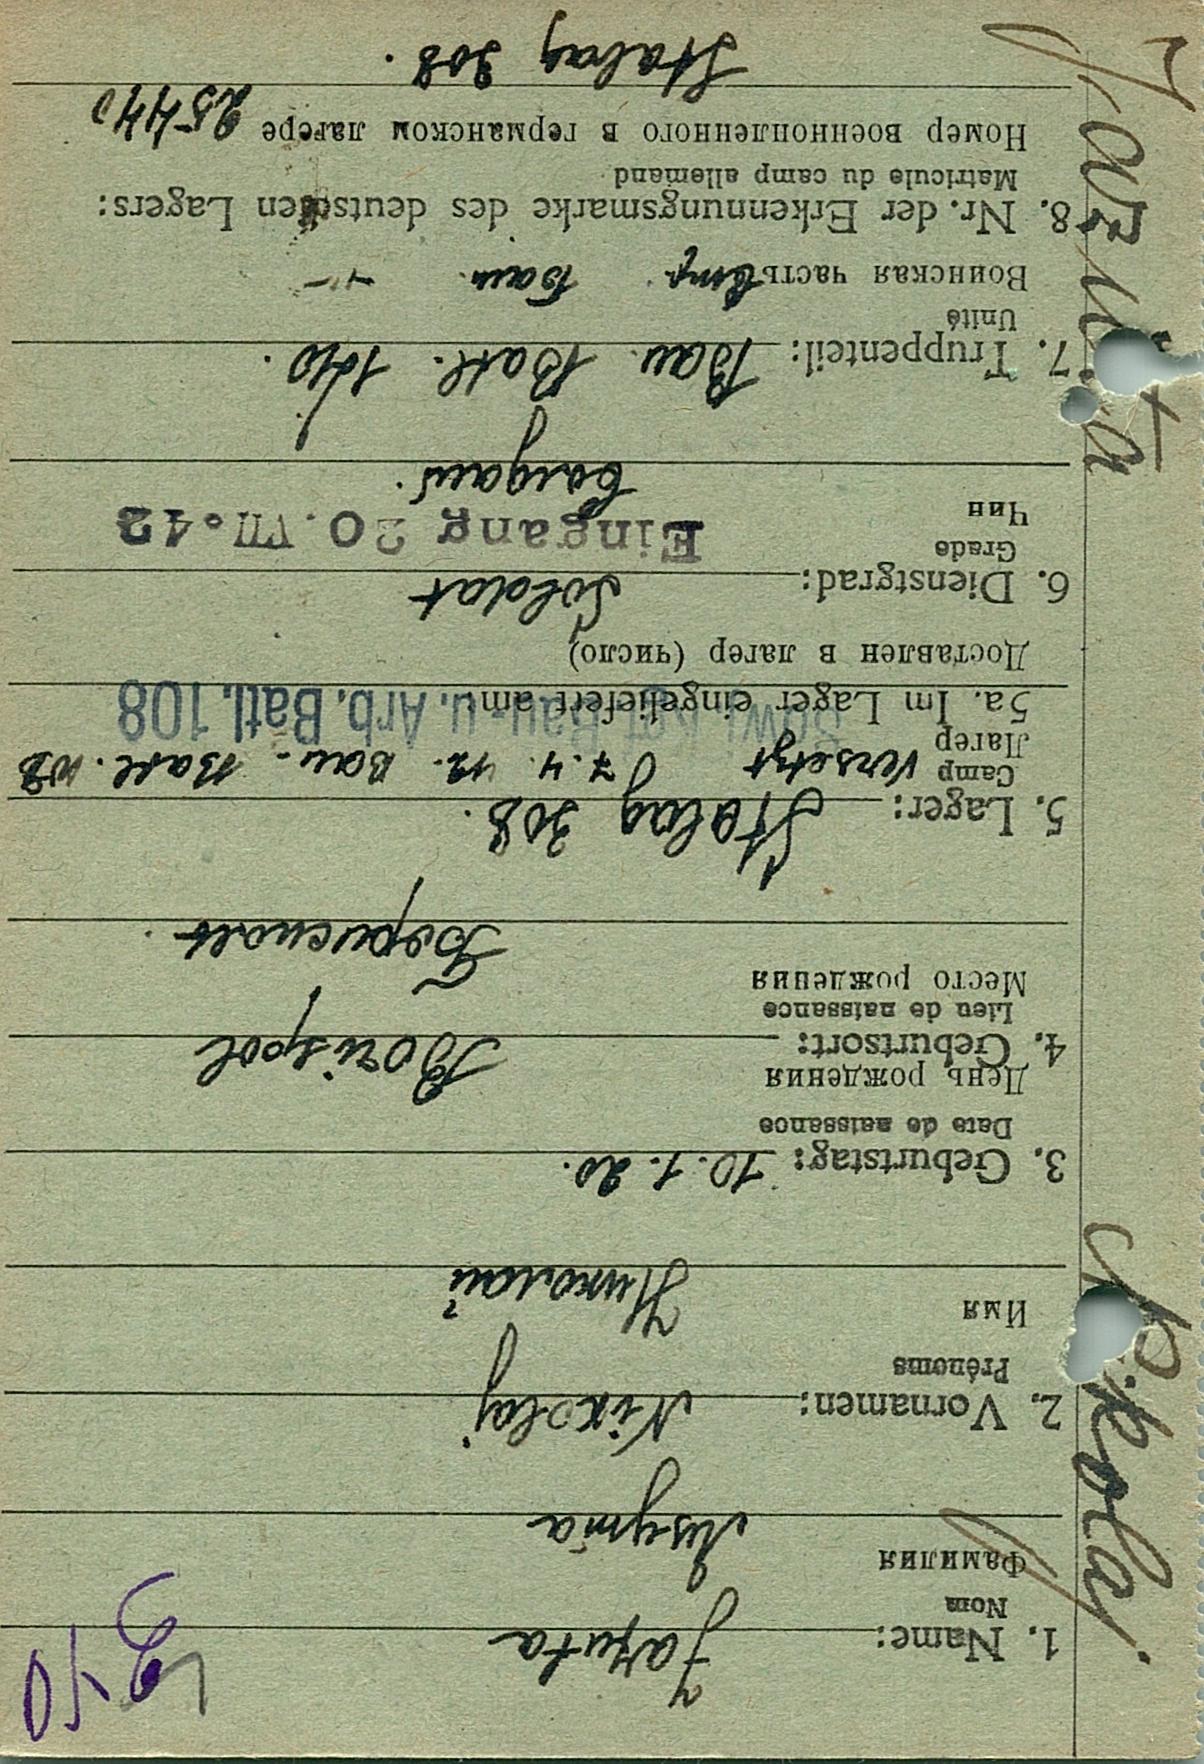 1. Name: Jazuta
Nom
Фамилия
2. Vornamen: Nikolaj
Prénoms
Имя Николай
3. Geburtstag: 10.1.20.
Date de naissance
День рождения
4. Geburtsort: Borispol
Lieu de naissance
Место рождения
Борисполь.
5. Lager: Stalag 308.
Camp versetzt 7.4.42. Bau-Batl. 108
Лагер
Bau- u. Arb. Batl. 108
5a. Im Lager eingeliefert am
Доставлен в лагер (число)
6. Dienstgrad: Soldat
Grade
Eingang 20. VII. 42
Чин
7. Truppenteil: Bau. Batl.
Unité
Воинская часть
8. Nr. der Erkennungsmarke des deutschen Lagers:
Matricule du camp allemand
Номер военнопленного в германском лагере 25440
Stalag 308.
Nikolaj
Jazuta